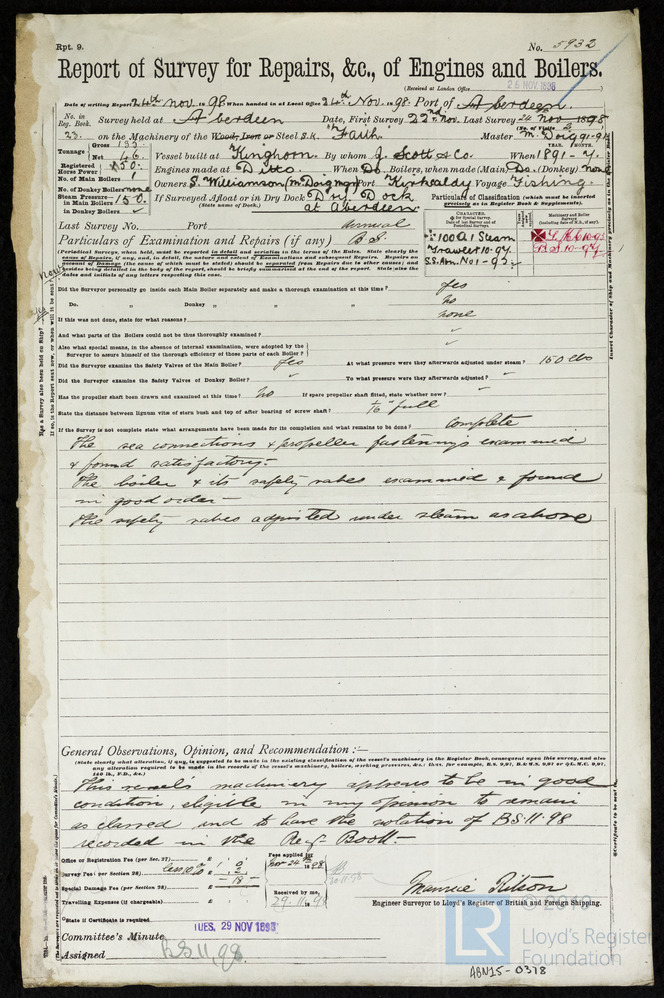 Rpt. 9.
No. 5932
Report of Survey for Repairs, &c., of Engines and Boilers.
(Received at London Office 25 NOV. 1898
Date of writing Report 24th Nov. 1898 When handed in at Local Office 24th Nov. 1898. Port of Aberdeen.
No. in Reg. Book. Survey held at Aberdeen Date, First Survey 22nd Nov. Last Survey 24th Nov 1898
(No. of Visits 2
23. on the Machinery of the Wood, Iron or Steel S.K. "Faith" Master M. Doig
Tonnage Gross 133 Net 46 Vessel built at Kinghorn. By whom J. Scott & Co. When 1891-7.
YEAR. MONTH.
Registered Horse Power 50. Engines made at Ditto. When Do. Boilers, when made (Main) Do. (Donkey) none
No. of Main Boilers 1 Owners S. Williamson Port Kirkcaldy Voyage Fishing.
No. of Donkey Boilers none
Steam Pressure in Main Boilers 150. If Surveyed Afloat or in Dry Dock Dry Dock at Aberdeen.
(State name of Dock.)
in Donkey Boilers
Particulars of Classification (which must be inserted precisely as in Register Book & Supplements).
Last Survey No. Port
Particulars of Examination and Repairs (if any) Annual B.S.
100A1 Steam
Trawler 10.97
S.S. Abn. No1-95
(Periodical Surveys, when held, must be reported in detail and seriatim in the terms of the Rules. State clearly the cause, if any, and, in detail, the nature and extent of Examinations and subsequent Repairs. Repairs on account of Damage (the cause of which must be stated) should be separated from Repairs due to other causes; and besides being detailed in the body of the report, should be briefly summarised at the end of the report. State also the dates and initials of any letters respecting this case.
Did the Surveyor personally go inside each Main Boiler separately and make a thorough examination at this time? yes
Do. " Donkey " " " " no
If this was not done, state for what reasons? none
And what parts of the Boilers could not be thus thoroughly examined?
Also what special means, in the absence of internal examination, were adopted by the Surveyor to assure himself of the thorough efficiency of those parts of each Boiler?
Did the Surveyor examine the Safety Valves of the Main Boiler? yes At what pressure were they afterwards adjusted under steam? 150 lbs
Did the Surveyor examine the Safety Valves of Donkey Boiler? To what pressure were they afterwards adjusted?
Has the propeller shaft been drawn and examined at this time? No If spare propeller shaft fitted, state whether new?
State the distance between lignum vitæ of stern bush and top of after bearing of screw shaft? 1/16" full
If the Survey is not complete state what arrangements have been made for its completion and what remains to be done? complete
The sea connections & propeller fastenings examined
& found satisfactory.
The boiler & its safety valves examined & found
in good order-
The safety valves adjusted under steam as above
General Observations, Opinion, and Recommendation:—
(State clearly what alteration, if any, is suggested to be made in the existing classification of the vessel's machinery in the Register Book, consequent upon this survey, and also any alteration required to be made in the records of the vessel's machinery, boilers, working pressures, &c.; thus, for example, B.S. 9,97, B.&M.S. 9,97 or ✠L.M.C. 9,97, 140 lb., F.D., &c.)
This vessel's machinery appears to be in good
condition, eligible in my opinion to remain
as classed and to have the notation of BS.11.98
recorded in the Reg. Book.
Office or Registration Fee (per Sec. 27) £
Survey Fee (per Section 28) £
Special Damage Fee (per Section 28) £
Travelling Expenses (if chargeable) £
Fees applied for
Nov 24th 1898
Received by me,
29.11.1898
Maurice Ritson
Engineer Surveyor to Lloyd's Register of British and Foreign Shipping.
State if Certificate is required
Committee's Minute TUES. 29 NOV 1898
Assigned B.S. 11,98
LR
© 2019
Lloyd's Register
Foundation
ABN15-0378